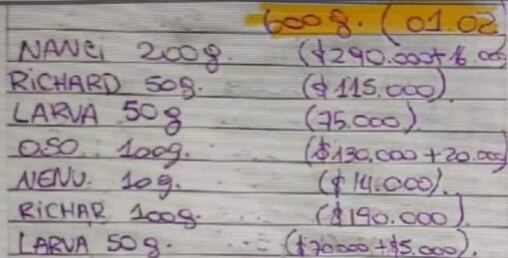 600g. (01.02
NANCi 200g. ($290.000+16.000
RiCHARD 50g. ($115.000)
LARVA 50g (75.000).
OSO 100g. ($130.000+20.000
NENU. 10g. ($14.000).
RiCHAR 100g. ($190.000).
LARVA 50g. ($70000+$5.000).